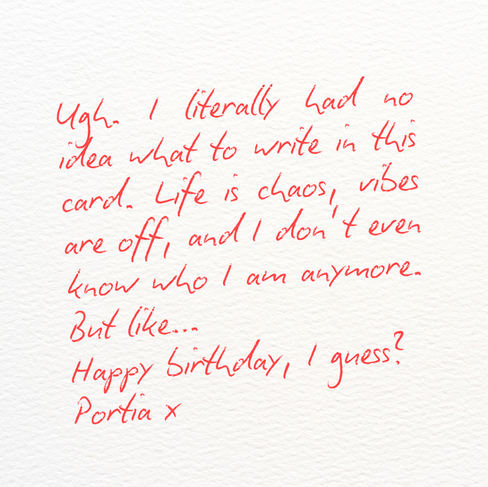 Ugh. I literally had no
idea what to write in this
card. Life is chaos, vibes
are off, and I don't even
know who I am anymore.
But like...
Happy birthday, I guess?
Portia x